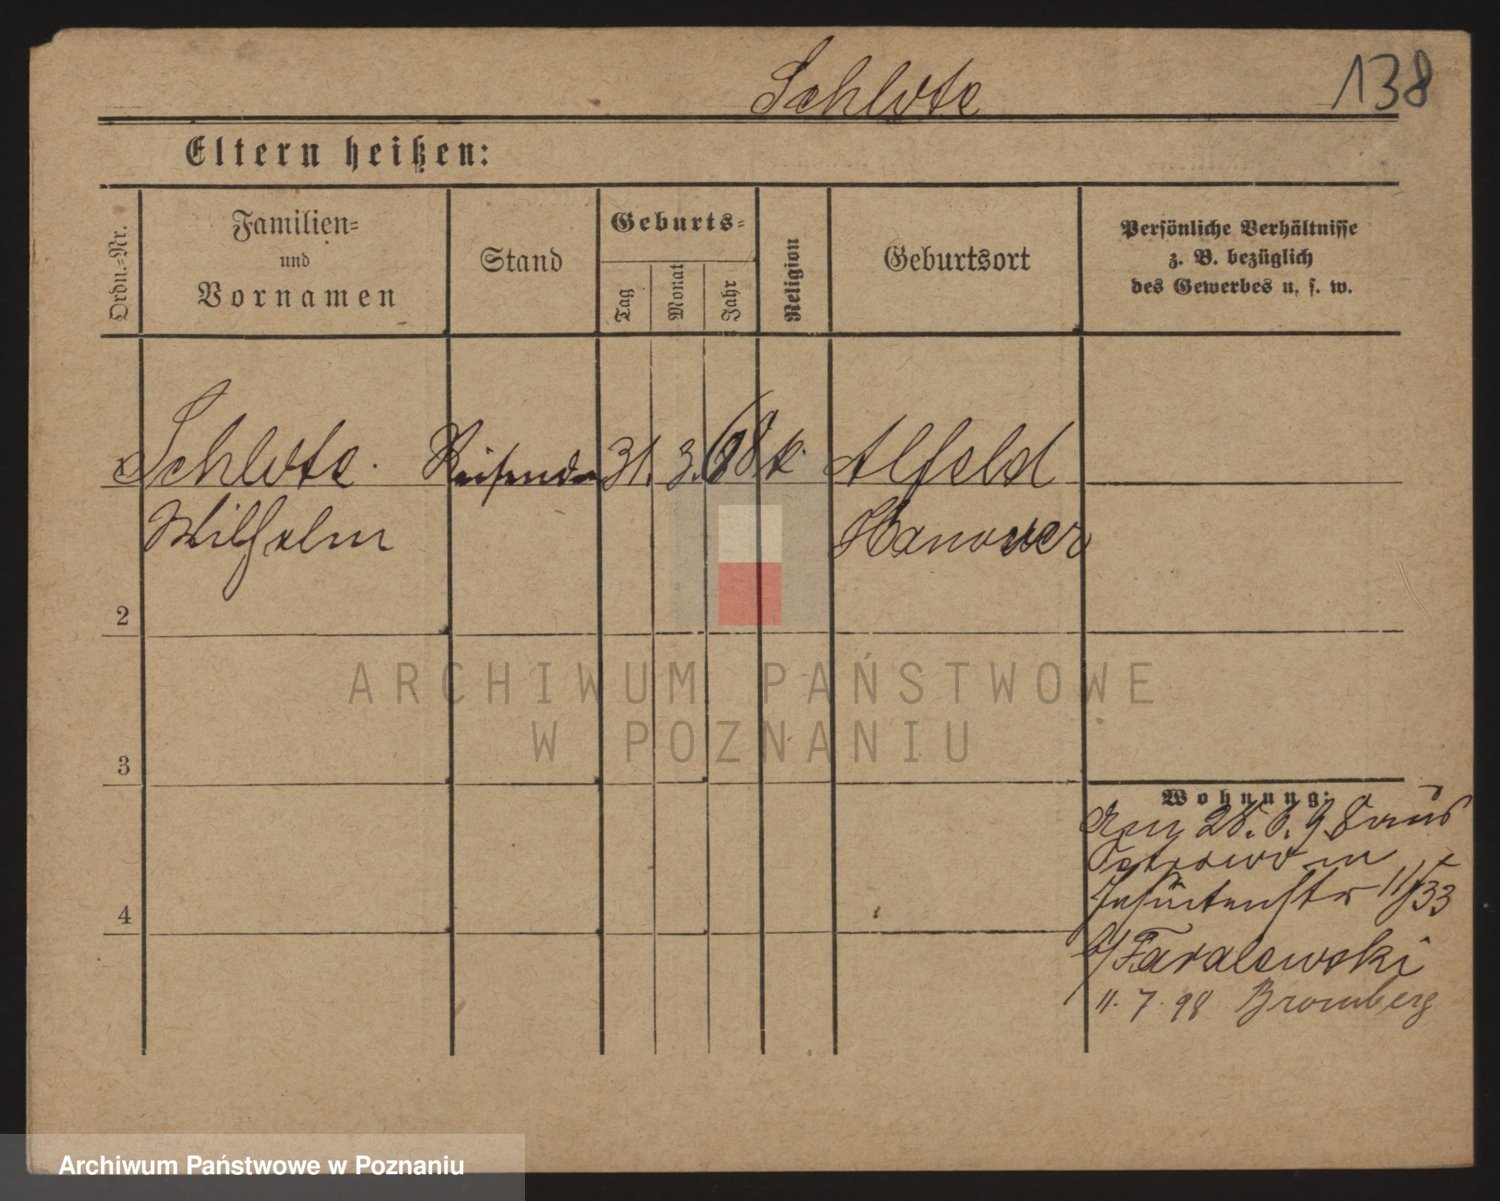 Schlote 138
Eltern heißen:
Ordn.-Nr.
Familien-
und
Vornamen
Stand
Geburts-
Tag
Monat
Jahr
Religion
Geburtsort
Persönliche Verhältnisse
z. B. bezüglich
des Gewerbes u. s. w.
Schlote Reisender 31. 3. 68 k. Alfeld
Wilhelm Hanover
2
3
4
Wohnung:
28. 6. 98 aus
Ostrowo in
Jesuitenstr 11/33
b/
11. 7. 98 Bromberg
ARCHIWUM PAŃSTWOWE
W POZNANIU
Archiwum Państwowe w Poznaniu